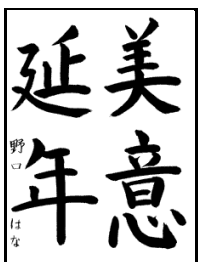 美意
延年
野口 はな